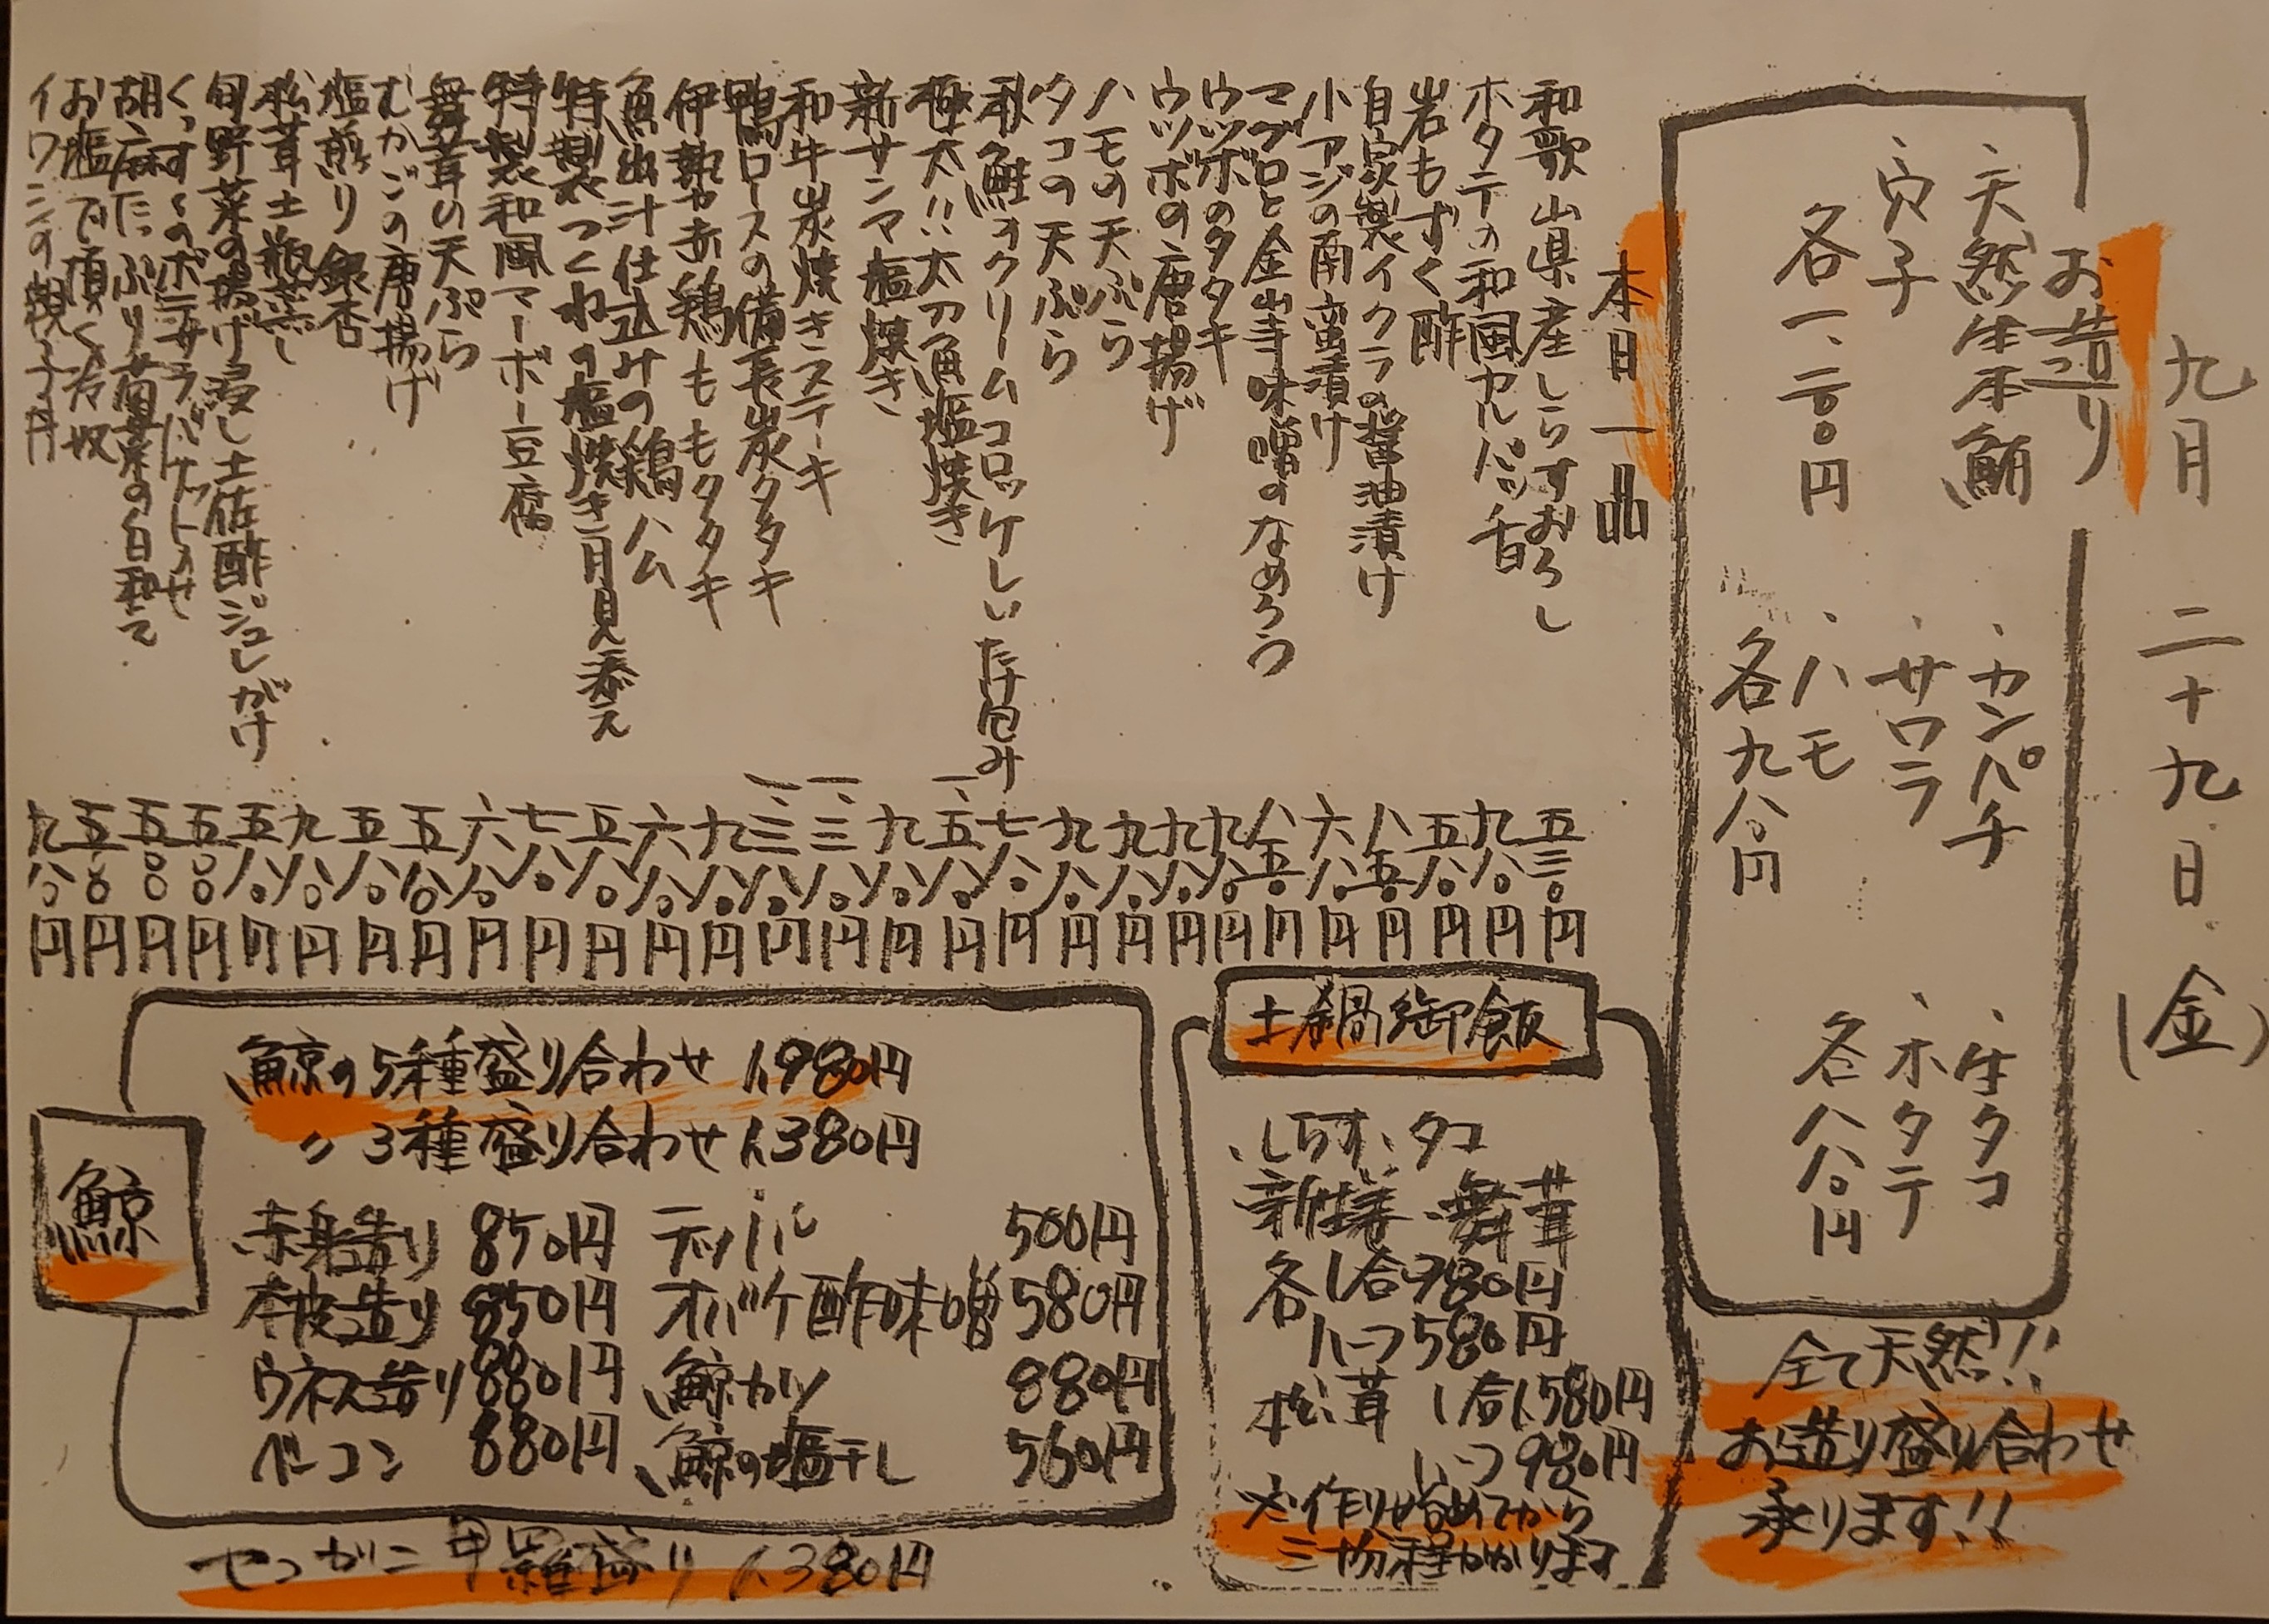 九月 二十九日 (金)
お造り
・天然生本鮪
・穴子
各一、二八〇円
・カンパチ
・サワラ
・ハモ
各九八〇円
・生タコ
・ホタテ
各八八〇円
全て天然!!
お造り盛り合わせ
承ります!!
本日一品
和歌山県産しらすおろし 五三〇円
ホタテの和風カルパッチョ 九八〇円
岩もずく酢 五八〇円
自家製イクラの醤油漬け 八五〇円
小アジの南蛮漬け 六八〇円
マグロと金山寺味噌のなめろう 八五〇円
ウツボのタタキ 九八〇円
ウツボの唐揚げ 九八〇円
ハモの天ぷら 九八〇円
タコの天ぷら 九八〇円
秋鮭のクリームコロッケしいたけ包み 七八〇円
極太!!太刀魚塩焼き 一、五八〇円
新サンマ塩焼き 九八〇円
和牛炭焼きステーキ 一、三八〇円
鴨ロースの備長炭タタキ 一、三八〇円
伊勢赤鶏ももタタキ 九八〇円
魚出汁仕込みの鶏ハム 六八〇円
特製つくねの塩焼き 月見添え 五八〇円
特製和風マーボー豆腐 七八〇円
舞茸の天ぷら 六八〇円
むかごの唐揚げ 五八〇円
塩煎り銀杏 五八〇円
松茸土瓶蒸し 九八〇円
旬野菜の揚げ浸し土佐酢ジュレがけ 五八〇円
くっすくのポテサラバケットのせ 五五〇円
胡麻たっぷり菊菜の白和え 五〇〇円
お塩で頂く冷奴 五五〇円
イワシの親子丼 九八〇円
土鍋御飯
・しらす・タコ
・新生姜・舞茸
各 1合 980円
ハーフ 580円
松茸 1合 1,580円
ハーフ 980円
※作り始めてから
三十分程かかります
鯨
鯨の5種盛り合わせ 1,980円
〃 3種盛り合わせ 1,380円
赤身造り 850円 テッパレ 500円
本皮造り 850円 オバケ酢味噌 580円
ウネス造り 880円 鯨カツ 880円
ベーコン 880円 鯨の塩干し 560円
セコガニ甲羅盛り 1,380円